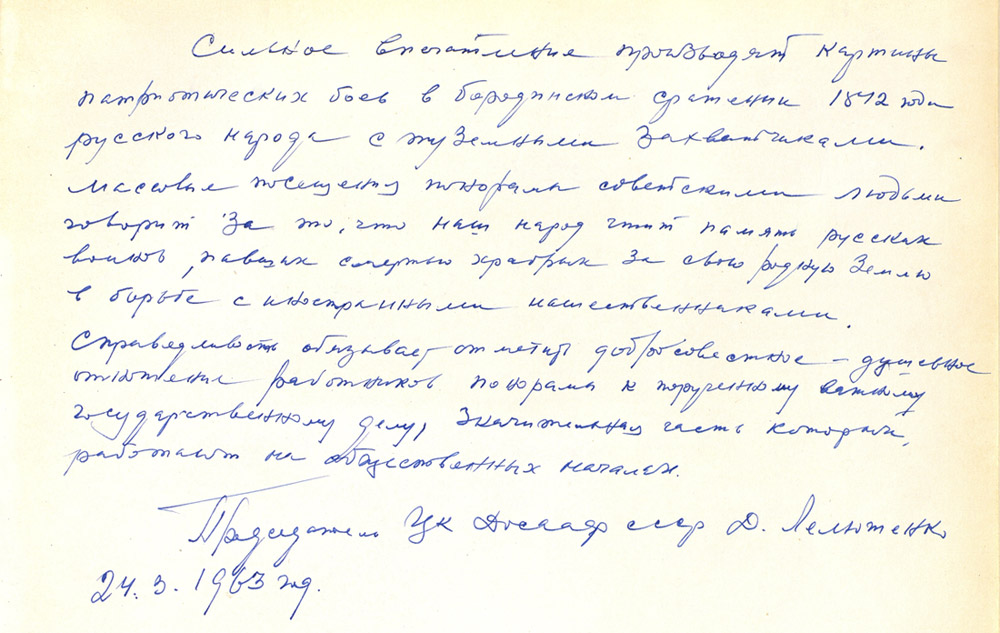 Сильное впечатление производят картины
патриотических боев в бородинском сражении 1812 года
русского народа с чуземными захватчиками.
Массовые посещения понорамы советскими людьми
говорит за то, что наш народ чтит память русских
воинов, павших смертью храбрых за свою родную землю
в борьбе с иностранными нашественниками.
Справедливость обязывает отметить добросовестное – душевное
отношение работников понорама к порученному важному
государственному делу, значительная часть которых,
работают на общественных началах.
Председатель ЦК Досааф ссср Д. Лелюшенко
24. 3. 1963 год.